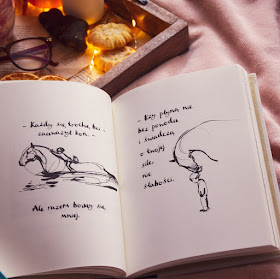 - Każdy się trochę boi -
zaznaczył koń. -
Ale razem boimy się
mniej.
- Łzy płyną nie
bez powodu
i świadczą
o twojej
sile,
nie
słabości.